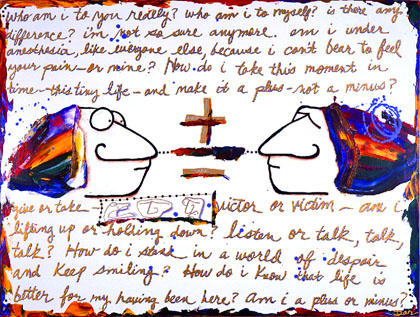 Who am i to you, really? Who am i to myself? is there any
difference? i'm not so sure anymore. am i under
anesthesia, like everyone else, because i can't bear to feel
your pain - or mine? How do i take this moment in
time - this tiny life - and make it a plus - not a minus?
give or take - victor or victim - am i
lifting up or holding down? listen or talk, talk,
talk? How do i stand in a world of despair
and keep smiling? How do i know that life is
better for my having been here? Am i a plus or minus?